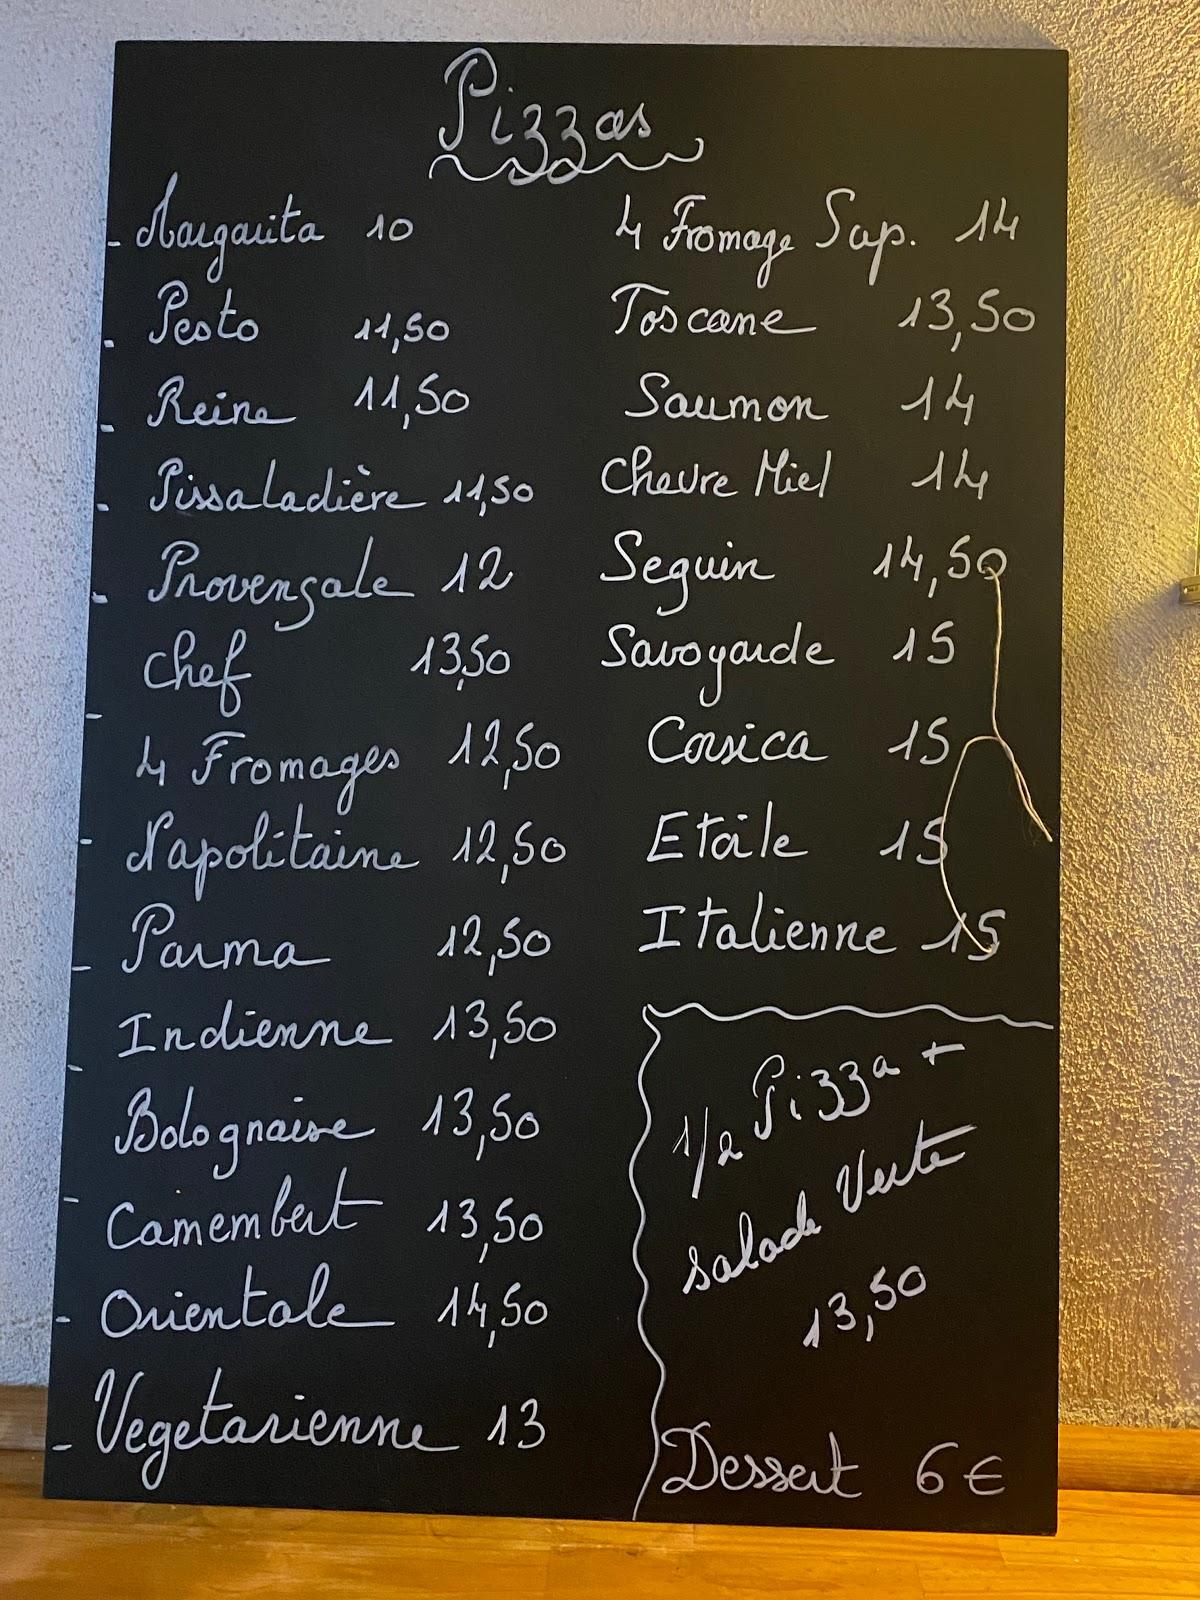 Pizzas
- Margarita 10
- Pesto 11,50
- Reine 11,50
- Pissaladière 11,50
- Provençale 12
Chef 13,50
- 4 Fromages 12,50
- Napolitaine 12,50
- Parma 12,50
- Indienne 13,50
Bolognaise 13,50
- Camembert 13,50
- Orientale 14,50
- Vegetarienne 13
4 Fromage Sup. 14
Toscane 13,50
Saumon 14
Chevre Miel 14
Seguin 14,50
Savoyarde 15
Corsica 15
Etoile 15
Italienne 15
1/2 Pizza +
salade Verte
13,50
Dessert 6€